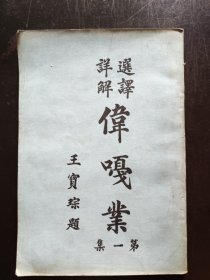 選譯
詳解
偉嘎業
第一集
王寳琮題